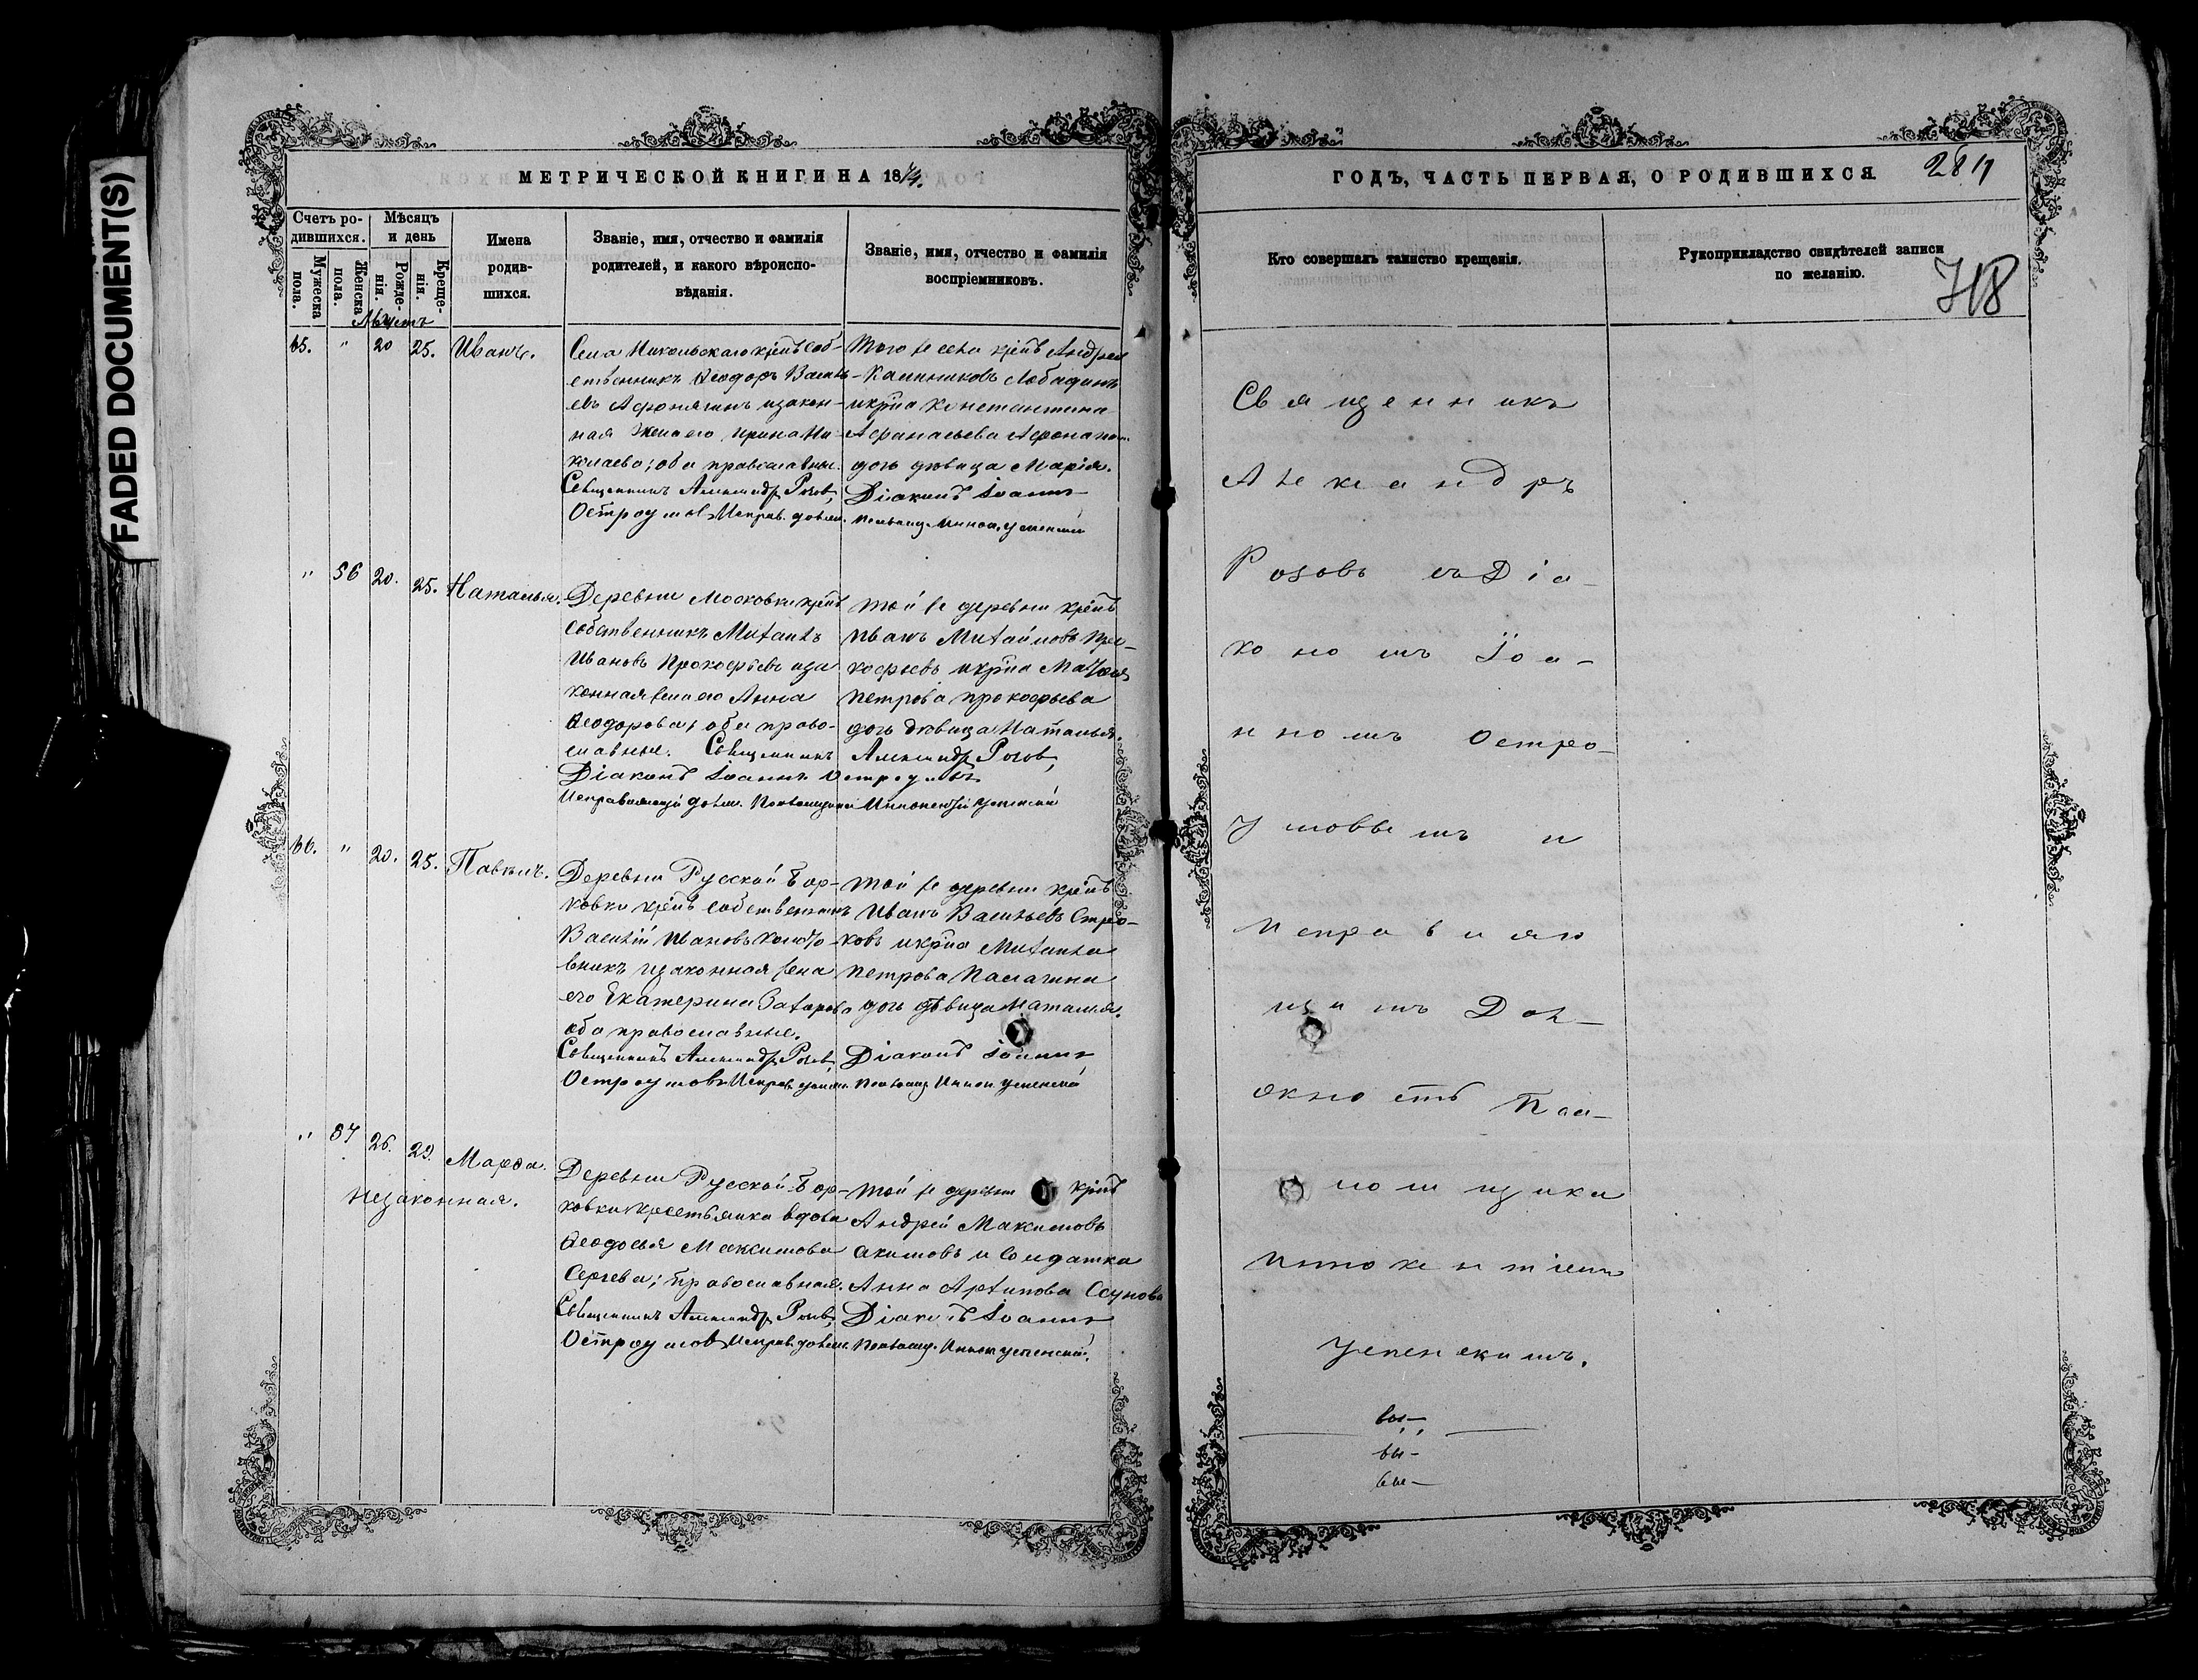 FADED DOCUMENT(S)
МЕТРИЧЕСКОЙ КНИГИ НА 1874.
Счетъ ро-
дившихся.
Мужеска
пола.
Женска
пола.
Мѣсяцъ
и день
Рожде-
нія.
Креще-
нія.
Имена
родив-
шихся.
Званіе, имя, отчество и фамилія
родителей, и какого вѣроиспо-
вѣданія.
Званіе, имя, отчество и фамилія
воспріемниковъ.
Августъ
65. " 20 25. Иванъ.
Села Никольскаго крнъ соб-
ственникъ Ѳеодоръ Василь-
евъ Афонягинъ и закон-
ная жена его Ирина Ни-
колаева; оба православные.
Священникъ Александръ Розовъ,
Остроумовъ Исправ. должн.
Того же села крнъ Андрей
Калиниковъ Лобадинъ
и крна Константина
Афанасьева Афоняги
дочь дѣвица Марія.
Діаконъ Іоаннъ
Псаломщ. Инноп. Успенскій
" 56 20. 25. Наталья.
Деревни Московки крнъ
собственникъ Михаилъ
Ивановъ Прокофьевъ и за
конная жена его Анна
Ѳеодорова; оба право-
славные. Священникъ Александръ Розовъ,
Діаконъ Іоаннъ Остроумовъ
Исправляющій должн. Псаломщика Иннокентій Успенскій
Той же деревни крнъ
Иванъ Михайловъ Про-
кофьевъ и крна Матвея
Петрова Прокофьева
дочь дѣвица Наталья.
66. " 20. 25. Павелъ.
Деревни Русской Бор-
ковки крнъ собственникъ
Василій Ивановъ
и законная жена
его Екатерина Захарова
оба православные.
Священникъ Александръ Розовъ,
Остроумовъ Исправ. должн.
Той же деревни крнъ
Иванъ Васильевъ Стро-
ковъ и крна Михаила
Петрова
дочь дѣвица Наталья.
Діаконъ Іоаннъ
Псаломщ. Иннок. Успенскій
" 57 26. 29. Марфа.
незаконная.
Деревни Русской Бор-
ковки крестьянка вдова
Ѳеодосья Максимова
Сергева; православная.
Священникъ Александръ Розовъ,
Остроумовъ Исправ. должн.
Той же деревни крнъ
Андрей Максимовъ
Акимовъ и солдатка
Анна Архипова
Діаконъ Іоаннъ
Псаломщ. Иннок. Успенскій.
ГОДЪ, ЧАСТЬ ПЕРВАЯ, О РОДИВШИХСЯ.
Кто совершалъ таинство крещенія.
Рукоприкладство свидѣтелей записи
по желанію.
Священникъ
Александръ
Розовъ съ Діа-
кономъ Іоа-
нномъ Остро-
умовымъ и
Исправляю
щимъ Дол-
жность Пса-
ломщика
Иннокентіемъ
Успенскимъ.